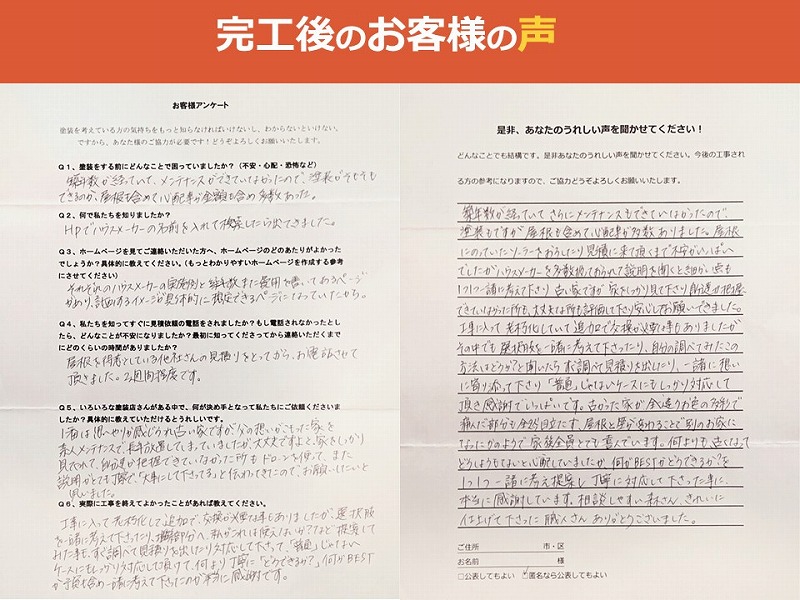 完工後のお客様の声
お客様アンケート
塗装を考えている方の気持ちをもっと知らなければいけないし、わからないといけない。
ですから、あなた様のご協力が必要です！どうぞよろしくお願いいたします。
Q1、塗装をする前にどんなことで困っていましたか？（不安・心配・恐怖など）
築年数が経っていて、メンテナンスができていなかったので、塗装がそもそも
できるのか、屋根も含めて心配事が金額も含め多数あった。
Q2、何で私たちを知りましたか？
HPでハウスメーカーの名前を入れて検索したら出てきました。
Q3、ホームページを見てご連絡いただいた方へ、ホームページのどのあたりがよかった
でしょうか？具体的に教えてください。（もっとわかりやすいホームページを作成する参考
にさせてください）
それぞれのハウスメーカーの実施例と築年数また費用を書いてあるページ
があり、計画するイメージが具体的に想定できるページになっていたから。
Q4、私たちを知ってすぐに見積依頼の電話をされましたか？もし電話されなかったとし
たら、どんなことが不安になりましたか？最初に知ってくださってから連絡いただくまで
にどのくらいの時間がありましたか？
屋根を得意としている他社さんの見積りをとってから、お電話させて
頂きました。2週間程度です。
Q5、いろいろな塗装店さんがある中で、何が決め手となって私たちにご依頼くださいま
したか？具体的に教えていただけるとうれしいです。
1番は思いやりが感じられ古い家ですが、今の想いがもった家を
素人メンテナンスで、長年放置してしまっていましたが、大丈夫ですよと、家をしっかり
見てくれて、自分達が把握できていなかった所もドローンを使って、また
説明がとても丁寧で、「大事にして下さってる」と伝わってきたこので、お願いしたいと
思いました。
Q6、実際に工事を終えてよかったことがあれば教えてください。
工事に入って老朽化して追加で、交換が必要な事もありましたが、選択肢
を一緒に考えて下さったり、補修部分へ、私がこれは使えないか？など提案して
みた事も、すぐ調べて見積りを出したり対応して下さって、「普通」じゃない
ケースにもしっかり対応して頂けて、何より丁寧に「どうできるか？」何がBEST
か予算も含め一緒に考えて下さったのが本当に感謝です。
是非、あなたのうれしい声を聞かせてください！
どんなことでも結構です。是非あなたのうれしい声を聞かせてください。今後の工事され
る方の参考になりますので、ご協力どうぞよろしくお願いいたします。
築年数が経っていて さらにメンテナンスもできていなかったので、
塗装もですが 屋根も含めて心配事が多数ありました。屋根
にのっていたソーラーをおろしたり 見積に来て頂くまで不安がいっぱい
でしたが ハウスメーカーを多数扱っておられて説明を聞くとき細かい点も
1つ1つ一緒に考えて下さり 古い家ですが 家をしっかり見て下さり 自分達が把握
できていなかった所も、大丈夫な所も評価して下さり安心してお願いできました。
工事に入って 老朽化していて追加で交換が必要な事もありましたが
その中でも選択肢を一緒に考えて下さったり、自分の調べてみたこの
方法はどうか？と聞いたら即調べて見積りを出したり、一緒に想い
に寄り添って下さり「普通」じゃないケースにもしっかり対応して
頂き感謝でいっぱいです。古かった家が 全く違うお色の多彩で
痛んだ部分も全然目立たず。屋根と壁が変わることで別のお家に
なったかのようで家族全員とても喜んでいます。何よりも古くなって
どうしようもないと心配していましたが、何がBESTかどうできるか？を
1つ1つ一緒に考え提案し 丁寧に対応して下さった事に、
本当に感謝しています。相談しやすい森さん、きれいに
仕上げて下さった職人さん ありがとうございました。
ご住所 市・区
お名前 様
□公表してもよい ☑匿名なら公表してもよい